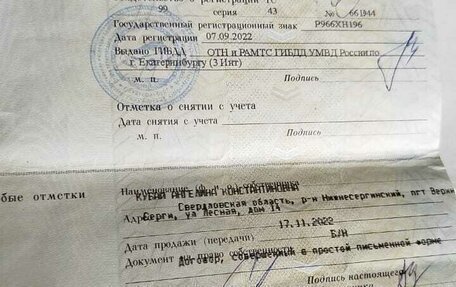 о регистрации ТС
99 серия 43 № 661944
Государственный регистрационный знак Р966ХН196
Дата регистрации 07.09.2022
Выдано ГИБДД ОТН и РАМТС ГИБДД УМВД России по
г. Екатеринбургу (3 Ият)
м. п. Подпись
Отметка о снятии с учета
Дата снятия с учета
м. п. Подпись
бые отметки
Наименование собственника
АНГЕЛИНА КОНСТАНТИНОВНА
Свердловская область, р-н Нижнесергинский, пгт Верхн
Адрес
Серги, ул Лесная, дом 14
17.11.2022
Дата продажи (передачи)
Б/Н
Документ на право собственности
Договор, совершенный в простой письменной форме
Подпись настоящего